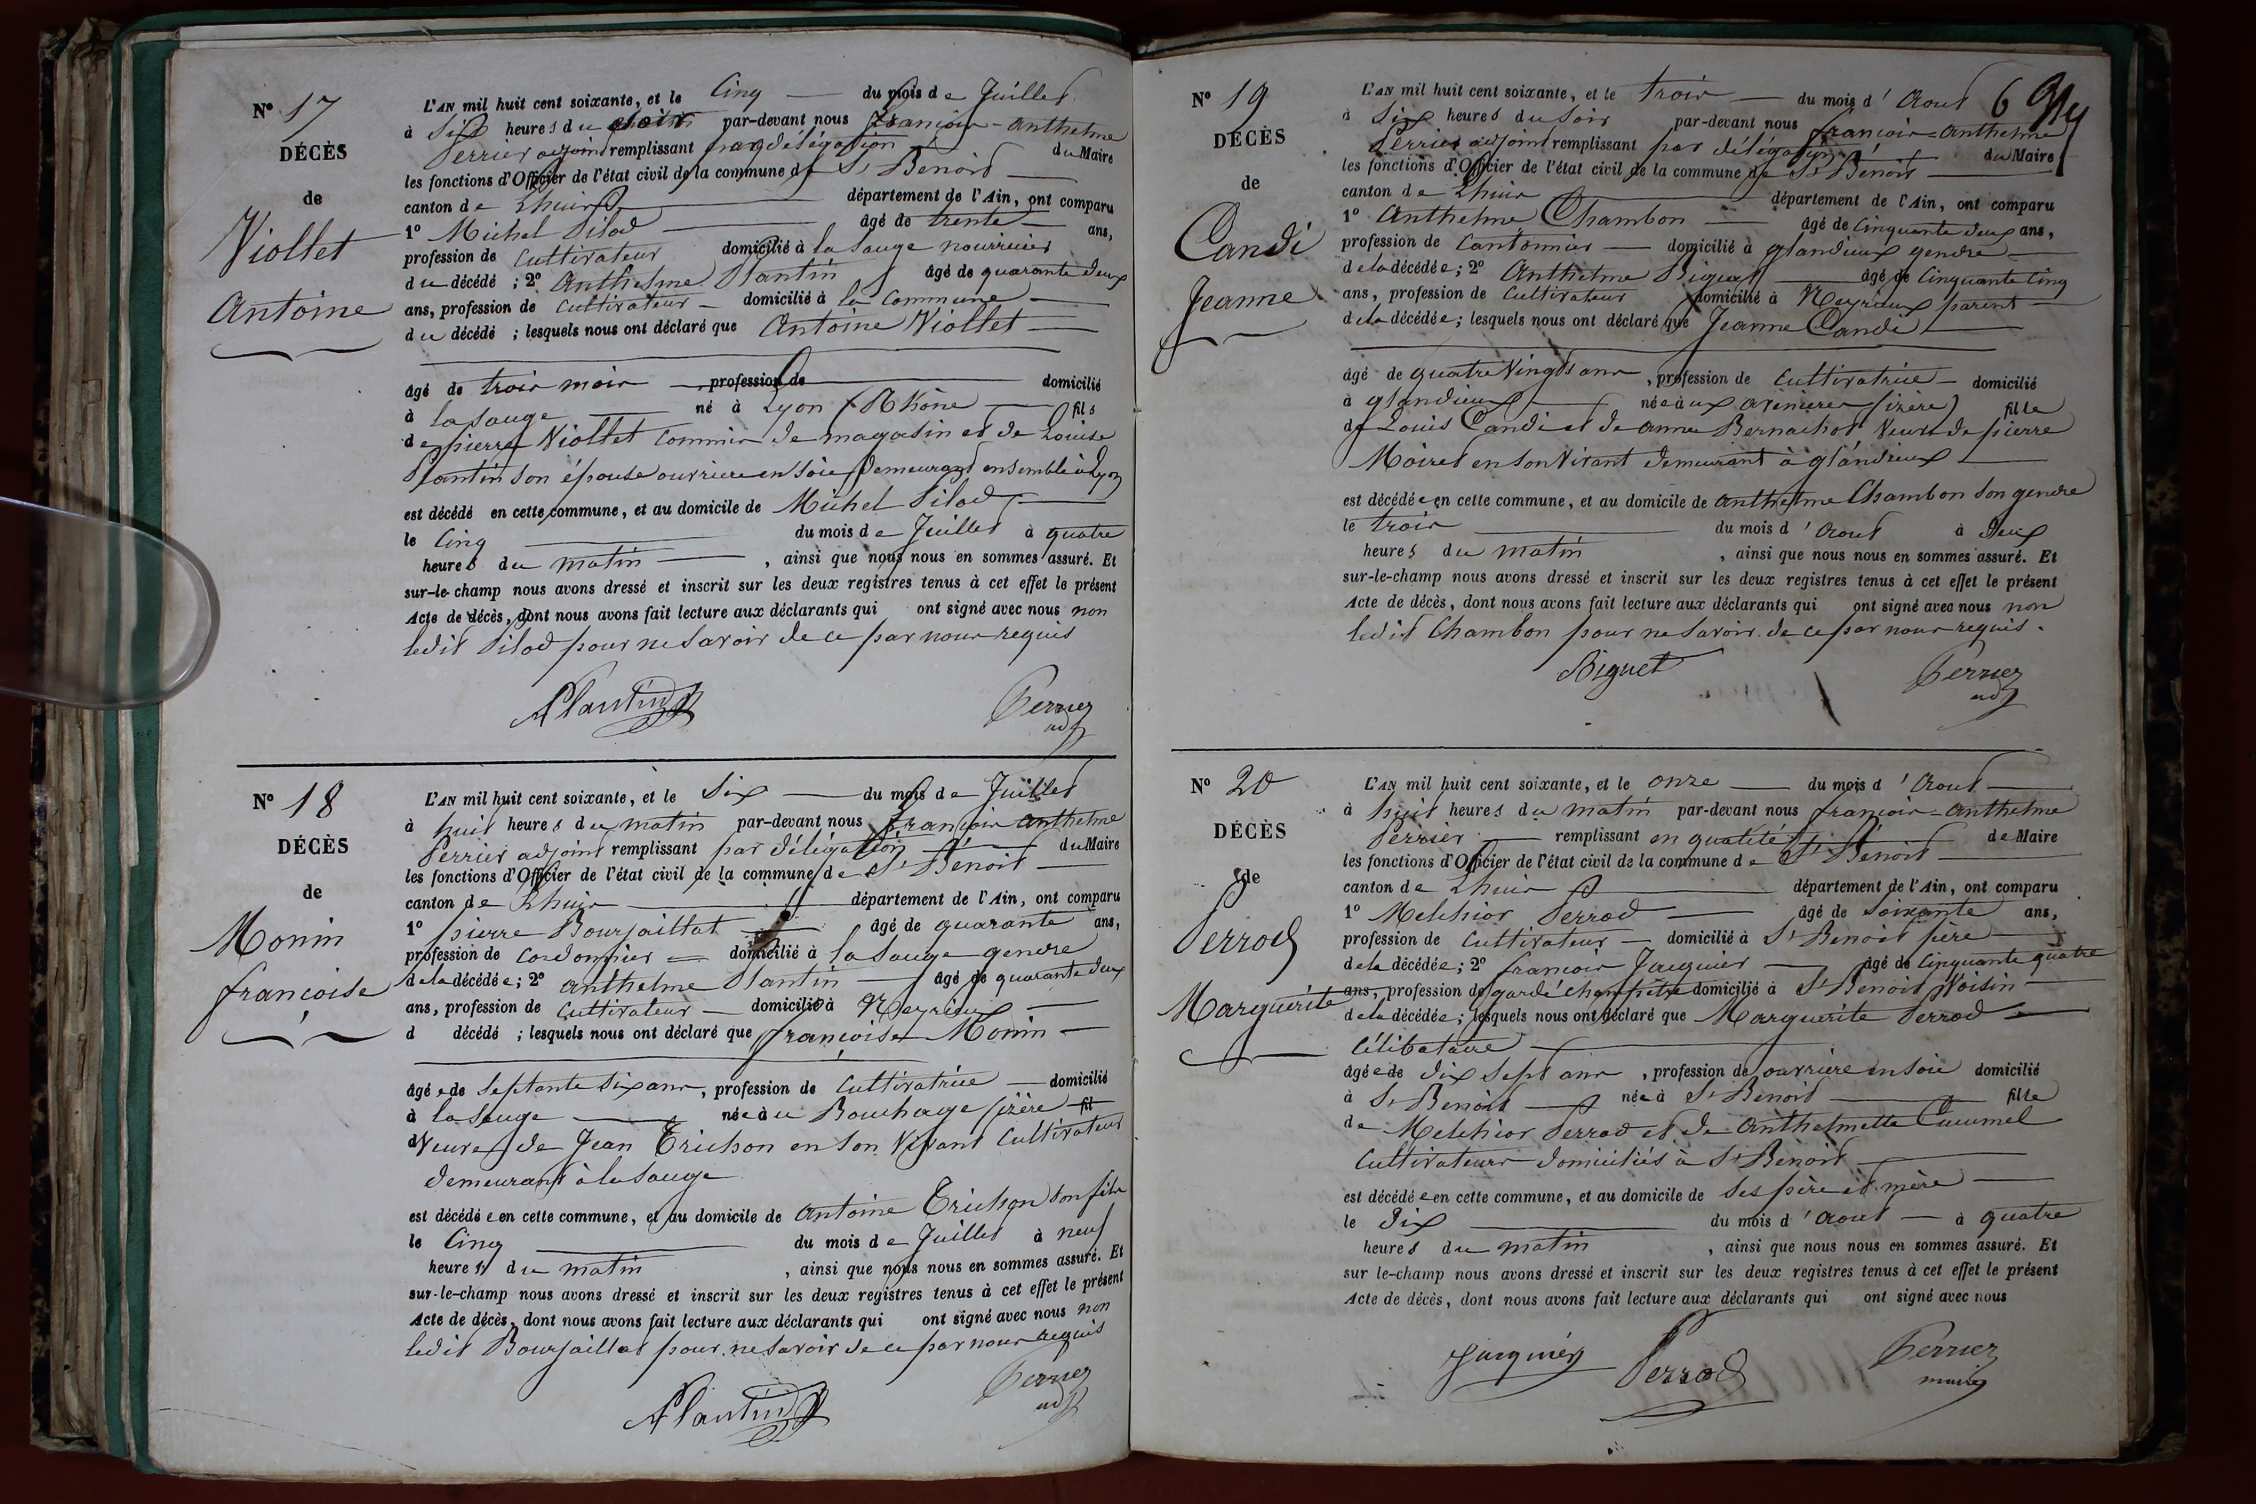 N° 17
DÉCÈS
de
Viollet
Antoine
L'AN mil huit cent soixante, et le Cinq du mois de Juillet
à Six heures du soir par-devant nous françois-anthelme
Perrier adjoint remplissant par délégation du Maire
les fonctions d'Officier de l'état civil de la commune de St Benoit
canton de Lhuis département de l'Ain, ont comparu
1° Michel Pilod âgé de trente ans,
profession de Cultivateur domicilié à la Sauge nourricier
du décédé ; 2° Anthelme Plantin âgé de quarante deux
ans, profession de Cultivateur domicilié à la Commune
du décédé ; lesquels nous ont déclaré que Antoine Viollet
âgé de trois mois profession de domicilié
à la Sauge né à Lyon (Rhône fils
de pierre Viollet Commis de magasin et de Louise
Plantin son épouse ouvriere en soie demeurant ensemble à Lyon
est décédé en cette commune, et au domicile de Michel Pilod
le Cinq du mois de Juillet à quatre
heures du matin , ainsi que nous nous en sommes assuré. Et
sur-le-champ nous avons dressé et inscrit sur les deux registres tenus à cet effet le présent
Acte de décès, dont nous avons fait lecture aux déclarants qui ont signé avec nous non
ledit Pilod pour ne Savoir de ce par nous requis
APlantin
Perrier
adj
N° 18
DÉCÈS
de
Monin
françoise
L'AN mil huit cent soixante, et le Six du mois de Juillet
à huit heures du matin par-devant nous françois anthelme
Perrier adjoint remplissant par délégation du Maire
les fonctions d'Officier de l'état civil de la commune de St Benoit
canton de Lhuis département de l'Ain, ont comparu
1° pierre Bourjaillat âgé de quarante ans,
profession de Cordonnier domicilié à la Sauge gendre
de la décédée; 2° anthelme Plantin âgé de quarante deux
ans, profession de Cultivateur domicilié à Meyrieux
d décédé ; lesquels nous ont déclaré que françoise Monin
âgée de Septante Six ans, profession de Cultivatrice domicilié
à la Sauge née au Bouchage (izère fil
Veuve de Jean Trichon en son Vivant Cultivateur
demeurant à la Sauge
est décédée en cette commune, et au domicile de Antoine Trichon son fils
le Cinq du mois de Juillet à neuf
heures du matin , ainsi que nous nous en sommes assuré. Et
sur-le-champ nous avons dressé et inscrit sur les deux registres tenus à cet effet le présent
Acte de décès, dont nous avons fait lecture aux déclarants qui ont signé avec nous non
ledit Bourjaillat pour ne Savoir de ce par nous requis
APlantin
Perrier
adj
N° 19
DÉCÈS
de
Candi
Jeanne
6
L'AN mil huit cent soixante, et le trois du mois d'Aout
à Six heures du Soir par-devant nous françois-anthelme
Perrier adjoint remplissant par délégation du Maire
les fonctions d'Officier de l'état civil de la commune de St Benoit
canton de Lhuis département de l'Ain, ont comparu
1° Anthelme Chambon âgé de Cinquante deux ans,
profession de Cantonnier domicilié à glandieux gendre
de la décédée; 2° Anthelme Biguet âgé de Cinquante Cinq
ans, profession de Cultivateur domicilié à Meyrieux parent
de la décédée; lesquels nous ont déclaré que Jeanne Candi
âgé de quatre Vingts ans, profession de Cultivatrice domicilié
à glandieux née aux avenieres (izère) fille
de Louis Candi et de anne Bernachot Veuve de pierre
Moiret en son Vivant demeurant à glandieux
est décédée en cette commune, et au domicile de Anthelme Chambon son gendre
le trois du mois d'Aout à deux
heures du matin , ainsi que nous nous en sommes assuré. Et
sur-le-champ nous avons dressé et inscrit sur les deux registres tenus à cet effet le présent
Acte de décès, dont nous avons fait lecture aux déclarants qui ont signé avec nous non
ledit Chambon pour ne Savoir de ce par nous requis.
Biguet
Perrier
adj
N° 20
DÉCÈS
de
Perrod
Marguerite
L'AN mil huit cent soixante, et le onze du mois d'Aout
à huit heures du matin par-devant nous françois-anthelme
Perrier remplissant en qualité de Maire
les fonctions d'Officier de l'état civil de la commune de St Benoit
canton de Lhuis département de l'Ain, ont comparu
1° Melchior Perrod âgé de Soixante ans,
profession de Cultivateur domicilié à St Benoit père
de la décédée; 2° françois Jacquier âgé de Cinquante quatre
ans, profession de garde Champêtre domicilié à St Benoit Voisin
de la décédée; lesquels nous ont déclaré que Marguerite Perrod
Célibataire
âgée de dix Sept ans , profession de ouvrière en soie domicilié
à St Benoit née à St Benoit fille
de Melchior Perrod et de Anthelmette Cucumel
Cultivateurs domiciliés à St Benoit
est décédée en cette commune, et au domicile de Ses père et mère
le dix du mois d'Aout à quatre
heures du matin , ainsi que nous nous en sommes assuré. Et
sur le-champ nous avons dressé et inscrit sur les deux registres tenus à cet effet le présent
Acte de décès, dont nous avons fait lecture aux déclarants qui ont signé avec nous
Jacquier
Perrod
Perrier
maire